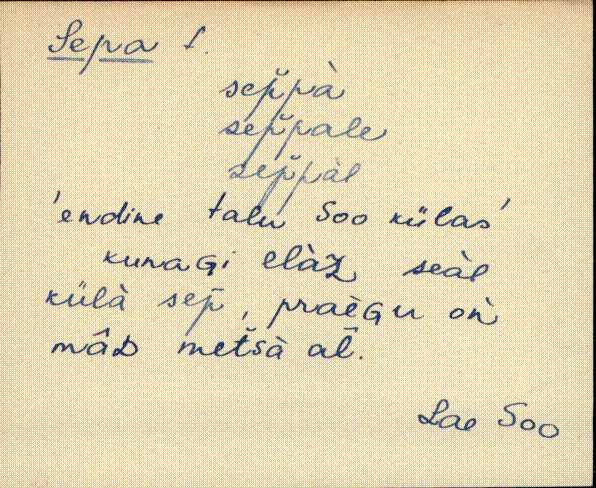 Sepa t.
sep̆pà
sep̆pale
sep̆pàl
'endine talu Soo külas'
kunaGi elàZ seàl
külà sep̆, praèGu on̆
mâD metšà al̄.
Lae Soo